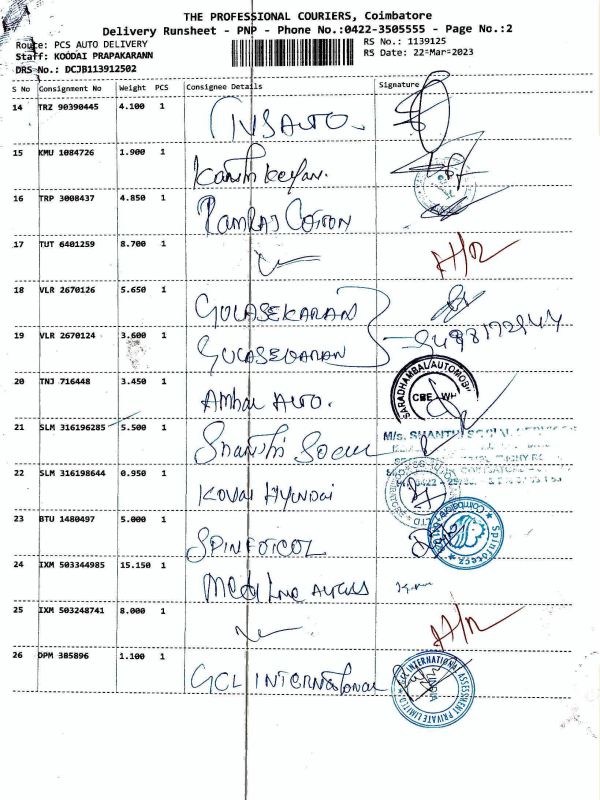 THE PROFESSIONAL COURIERS, Coimbatore
Delivery Runsheet - PNP - Phone No.:0422-3505555 - Page No.:2
Route: PCS AUTO DELIVERY
RS No.: 1139125
Staff: KOODAI PRAPAKARANN
RS Date: 22-Mar-2023
DRS No.: DCJB113912502
S No Consignment No Weight PCS Consignee Details Signature
14 TRZ 90390445 4.100 1 TVS AUTO.
15 KMU 1084726 1.900 1
16 TRP 3008437 4.850 1 RAMRAJ COTTON
17 TUT 6401259 8.700 1
18 VLR 2670126 5.650 1 GULASEKARAN
19 VLR 2670124 3.600 1 GULASEKARAN
20 TNJ 716448 3.450 1 AMBAL AUTO.
SARADHAMBAL AUTOMOBI
CBE WH
21 SLM 316196285 5.500 1 Shanthi Social
M/s. SHANTHI SOCIAL SERVICES
22 SLM 316198644 0.950 1 KOVAI HYUNDAI
23 BTU 1480497 5.000 1
Spinfotecz
Coimbatore
24 IXM 503344985 15.150 1
25 IXM 503248741 8.000 1
26 DPM 385896 1.100 1 GCL INTERNATIONAL
GCL INTERNATIONAL ASSESSMENT PRIVATE LIMITED
INDIA